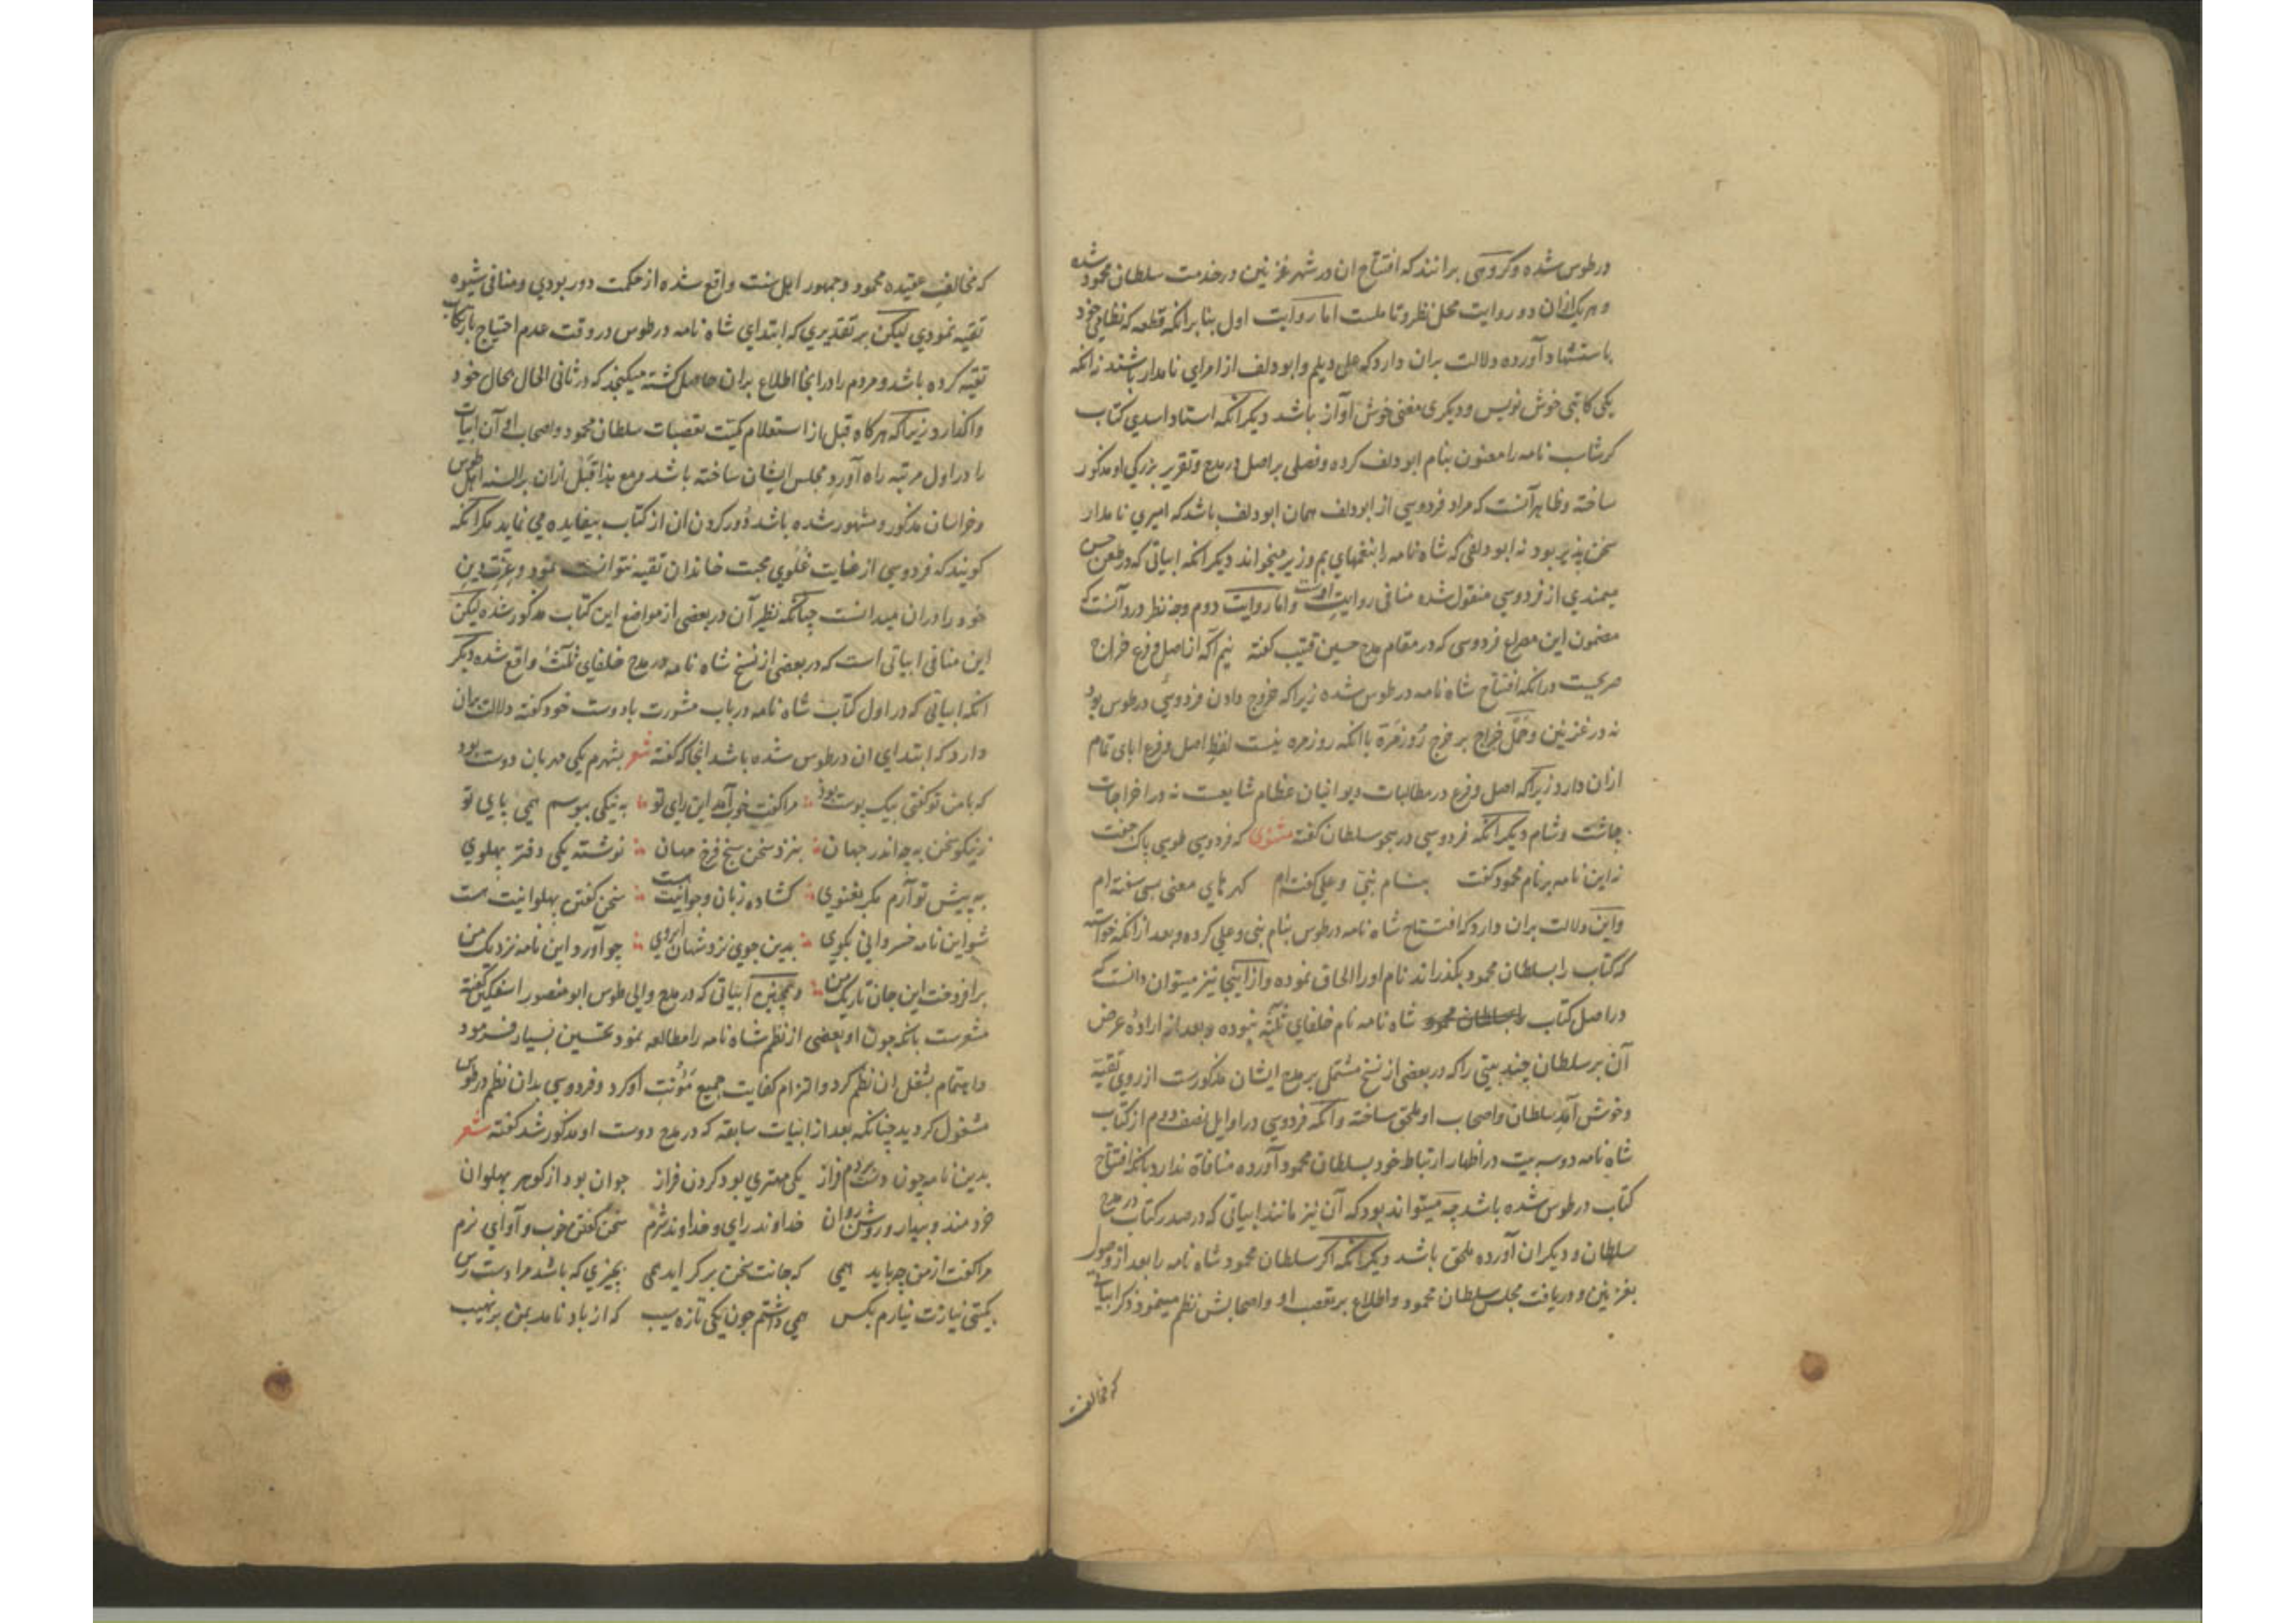 در طوس شده و گروهی برانند که افتتاح ان در شهر غزنین در خدمت سلطان محمود شده
و هر یک ازان دو روایت محل نظر و تاملست اما روایت اول بنا برانکه قطعه که نظامی خود
باستشهاد آورده دلالت بران دارد که علی دیلم و ابودلف از امرای نامدار باشند نه انکه
یکی کاتبی خوش نویس و دیگری مغنی خوش اواز باشد دیگر انکه استاد اسدی کتاب
کرشاسب نامه را معنون بنام ابودلف کرده و فصلی بر اصل در مدح و تقریر بزرکی او مذکور
ساخته و ظاهر آنست که مراد فردوسی از ابودلف همان ابودلف باشد که امیری نامدار
سخن پذیر بود نه ابودلفی که شاه نامه را بنغمهای بم و زیر میخواند دیگر انکه ابیاتی که در طعن حسن
میمندی از فردوسی منقول شده منافی روایت اوست و اما روایت دوم وجه نظر درو آنست که
مضمون این مصراع فردوسی که در مقام مدح حسین قتیب گفته نیم آگه از اصل و فرع خراج
صریحست درانکه افتتاح شاه نامه در طوس شده زیرا که خروج دادن فردوسی در طوس بود
نه در غزنین و حمل خراج بر خرج روزمره با انکه روزمره نیست لفظ اصل و فرع ابای تمام
ازان دارد زیرا که اصل و فرع در مطالبات دیوانیان عظام شایعست نه در اخراجات
چاشت و شام دیگر انکه فردوسی در هجو سلطان گفته مثنوی که فردوسی طوسی پاک جفت
نه این نامه بر نام محمود گفت بنام نبی و علی گفته ام گهرهای معنی بسی سفته ام
و این دلالت بران دارد که افتتاح شاه نامه در طوس بنام نبی و علی کرده و بعد ازانکه خواسته
که کتاب را بسلطان محمود بگذراند نام او را الحاق نموده و از اینجا نیز میتوان دانست که
در اصل کتاب شاه نامه نام خلفای ثلثه نبوده و بعد از اراده عرض
آن بر سلطان چند بیتی را که در بعضی از نسخ مشتمل بر مدح ایشان مذکورست از روی تقیه
و خوش آمد سلطان و اصحاب او ملحق ساخته و انکه فردوسی در اوایل نصف دوم از کتاب
شاه نامه دو سه بیت در اظهار ارتباط خود بسلطان محمود آورده منافاة ندارد بانکه افتتاح
کتاب در طوس شده باشد چه میتواند بود که آن نیز مانند ابیاتی که در صدر کتاب در مدح
سلطان و دیگران آورده ملحق باشد دیگر انکه اگر سلطان محمود شاه نامه را بعد از وصول
بغزنین و دریافت مجلس سلطان محمود و اطلاع بر تعصب او و اصحابش نظم مینمود ذکر ابیاتی
که مخالف
که مخالف عقیده محمود و جمهور اهل سنت واقع شده از حکمت دور بودی و منافی شیوه
تقیه نمودی لیکن بر تقدیری که ابتدای شاه نامه در طوس در وقت عدم احتیاج بارتکاب
تقیه کرده باشد و مردم را درانجا اطلاع بران حاصل گشته میکنجد که در ثانی الحال بحال خود
واگذارد زیرا که هرکاه قبل از استعلام کمیت تعصبات سلطان محمود و اصحاب او آن ابیات
را در اول مرتبه راه آورد مجلس ایشان ساخته باشد و مع هذا قبل ازان بر السنه اهل طوس
و خراسان مذکور و مشهور شده باشد دور کردن ان از کتاب بیفایده می نماید مگر انکه
گویند که فردوسی از غایت غلوی محبت خاندان تقیه نتوانست نمود و عزت دین
خود را دران میدانست چنانکه نظیر آن در بعضی از مواضع این کتاب مذکور شده لیکن
این منافی ابیاتی است که در بعضی از نسخ شاه نامه در مدح خلفای ثلثه واقع شده دیگر
انکه ابیاتی که در اول کتاب شاه نامه در باب مشورت با دوست خود گفته دلالت بران
دارد که ابتدای ان در طوس شده باشد انجا که گفته شعر بشهرم یکی مهربان دوست بود
که با من تو گفتی بیک پوست بود مرا گفت خوب آمد این رای تو به نیکی بپوسم همی پای تو
ز نیکو سخن به چه اندر جهان بنزد سخن سنج فرخ مهان نوشته یکی دفتر پهلوی
به پیش تو آرم مکر بغنوی گشاده زبان و جوانیت هست سخن گفتن پهلوانیت هست
شو این نامه خسروانی بگوی بدین جوی نزد شهان ابروی چو آورد این نامه نزدیک من
برافروخت این جان تاریک من و همچنین ابیاتی که در مدح والی طوس ابو منصور گفته
مشعرست بانکه چون او بعضی از نظم شاه نامه را مطالعه نمود تحسین بسیار فرمود
و اهتمام بشغل ان نظم کرد و التزام کفایت جمیع مؤنت او کرد و فردوسی بدان نظم در طوس
مشغول گردید چنانکه بعد از ابیات سابقه که در مدح دوست او مذکور شد گفته شعر
بدین نامه چون دست کردم فراز یکی مهتری بود گردن فراز جوان بود از گوهر پهلوان
خردمند و بیدار و روشن روان خداوند رای و خداوند شرم سخن گفتن خوب و آوای نرم
مرا گفت از من چه باید همی که جانت سخن بر گراید همی بچیزی که باشد مرا دست رس
بگیتی نیازت نیارم بکس همی داشتم چون یکی تازه سیب که از باد نامد بمن بر نهیب